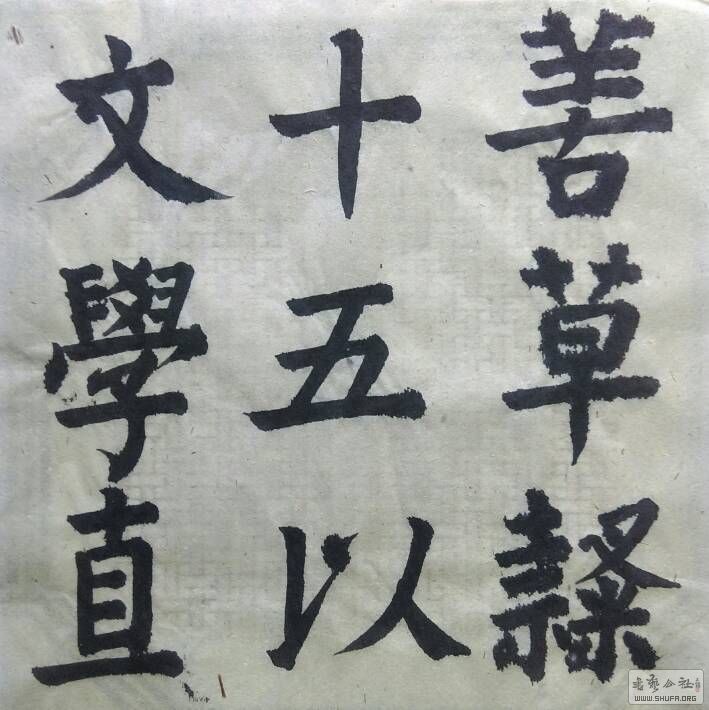 善草隸
十五以
文學直
书艺公社
WWW.SHUFA.ORG